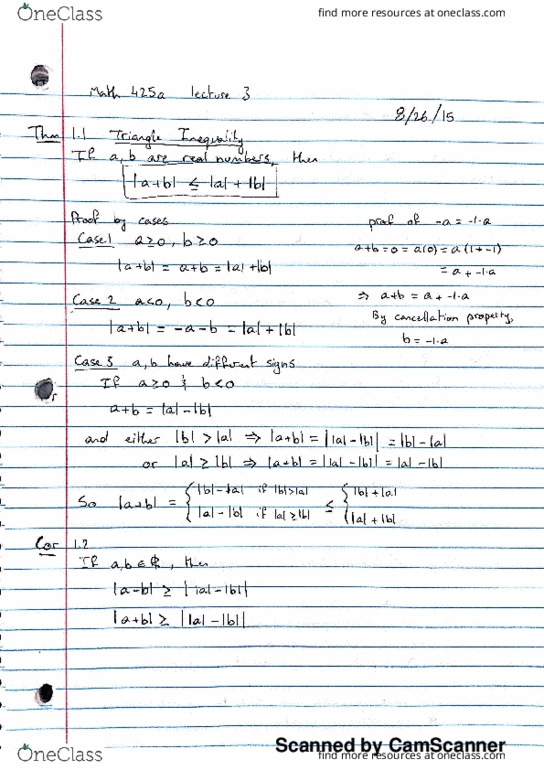 OneClass
find more resources at oneclass.com
Math 425a lecture 3
8/26/15
Thm 1.1 Triangle Inequality
If a,b are real numbers, then
|a+b| ≤ |a| + |b|
Proof by cases
Case 1 a≥0, b≥0
|a+b| = a+b = |a|+|b|
Case 2 a<0, b<0
|a+b| = -a-b = |a|+|b|
proof of -a = -1·a
a+b=0 = a(0) = a(1+-1)
= a + -1·a
⇒ a+b = a + -1·a
By cancellation property,
b = -1·a
Case 3 a,b have different signs
If a≥0 & b<0
a+b = |a|-|b|
and either |b| > |a| ⇒ |a+b| = ||a|-|b|| = |b|-|a|
or |a| ≥ |b| ⇒ |a+b| = ||a|-|b|| = |a|-|b|
So |a+b| = { |b|-|a| if |b|>|a| ≤ { |b|+|a|
|a|-|b| if |a|≥|b| |a|+|b|
Cor 1.2
If a,b ∈ ℝ, then
|a-b| ≥ ||a|-|b||
|a+b| ≥ ||a|-|b||
Scanned by CamScanner
OneClass
find more resources at oneclass.com